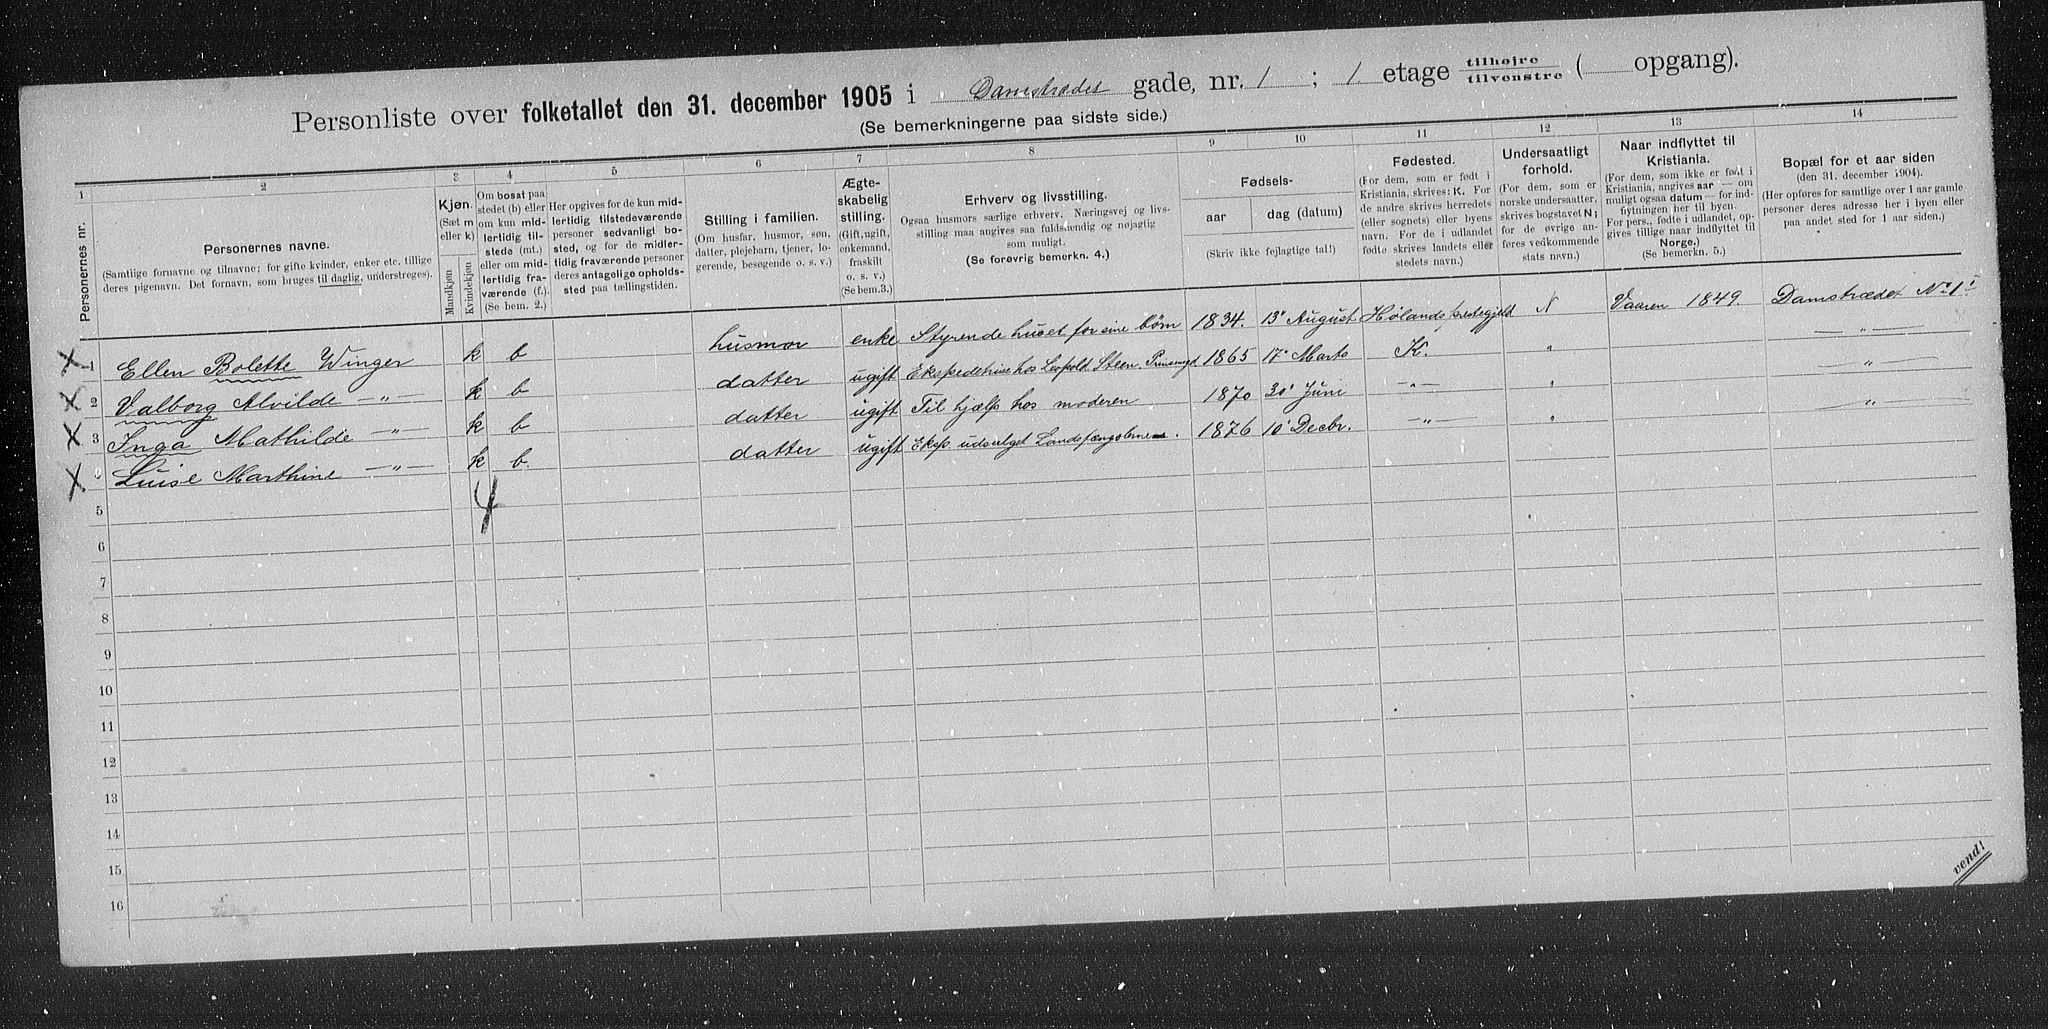 Personliste over folketallet den 31. december 1905 i Damstrædet gade, nr. 1 ; 1. etage tilhøjre tilvenstre ( opgang).
(Se bemerkningerne paa sidste side.)
1 2 3 4 5 6 7 8 9 10 11 12 13 14
Personernes nr.
Personernes navne.
(Samtlige fornavne og tilnavne; for gifte kvinder, enker etc. tillige
deres pigenavn. Det fornavn, som bruges til daglig, understreges).
Kjøn.
(Sæt m
eller k)
Mandkjøn
Kvindekjøn
Om bosat paa
stedet (b) eller
om kun mid-
lertidig til-
stede (mt.)
eller om mid-
lertidig fra-
værende (f.).
(Se bem. 2.)
Her opgives for de kun mid-
lertidig tilstedeværende
personer sedvanligt bo-
sted, og for de midler-
tidig fraværende personer
deres antagelige opholds-
sted paa tællingstiden.
Stilling i familien.
(Om husfar, husmor, søn,
datter, plejebarn, tjener, lo-
gerende, besøgende o. s. v.)
Ægte-
skabelig
stilling.
(Gift, ugift,
enkemand,
fraskilt
o. s. v.)
(Se bem.3.)
Erhverv og livsstilling.
Ogsaa husmors særlige erhverv. Næringsvej og livs-
stilling maa angives saa fuldstændig og nøjagtig
som muligt.
(Se forøvrig bemerkn. 4.)
Fødsels-
aar dag (datum)
(Skriv ikke fejlagtige tal!)
Fødested.
(For dem, som er født i
Kristiania, skrives: K. For
de andre skrives herredets
(eller sognets) eller byens
navn. For de i udlandet
fødte skrives landets eller
stedets navn.)
Undersaatligt
forhold.
(For dem, som er
norske undersaatter,
skrives bogstavet N;
for de øvrige an-
føres vedkommende
stats navn.)
Naar indflyttet til
Kristiania.
(For dem, som ikke er født i
Kristiania, angives aar — om
muligt ogsaa datum — for ind-
flytningen her til byen.
For pers., fødte i udlandet, op-
gives tillige naar indflyttet til
Norge.)
(Se bemerkn. 5.)
Bopæl for et aar siden
(den 31. december 1904).
(Her opføres for samtlige over 1 aar gamle
personer deres adresse her i byen eller
paa andet sted for 1 aar siden.)
X 1 Ellen Bolette Winger k b husmor enke Styrende huset for sine børn 1834. 13' August Hølands prestegjeld N Vaaren 1849. Damstrædet No 1'
X 2 Valborg Alvilde — " — k b datter ugift Ekspeditrise hos Leopold Steen. 1865 17' Marts K. " — " —
X 3 Inga Mathilde — " — k b datter ugift Til hjælp hos moderen 1870 30' Juni — " — " — " —
X Luise Marthine — " — k b. datter ugift Eksp. udsalget Landsfængslerne. 1876 10' Decbr. — " — " — " —
4
5
6
7
8
9
10
11
12
13
14
15
16
vend!